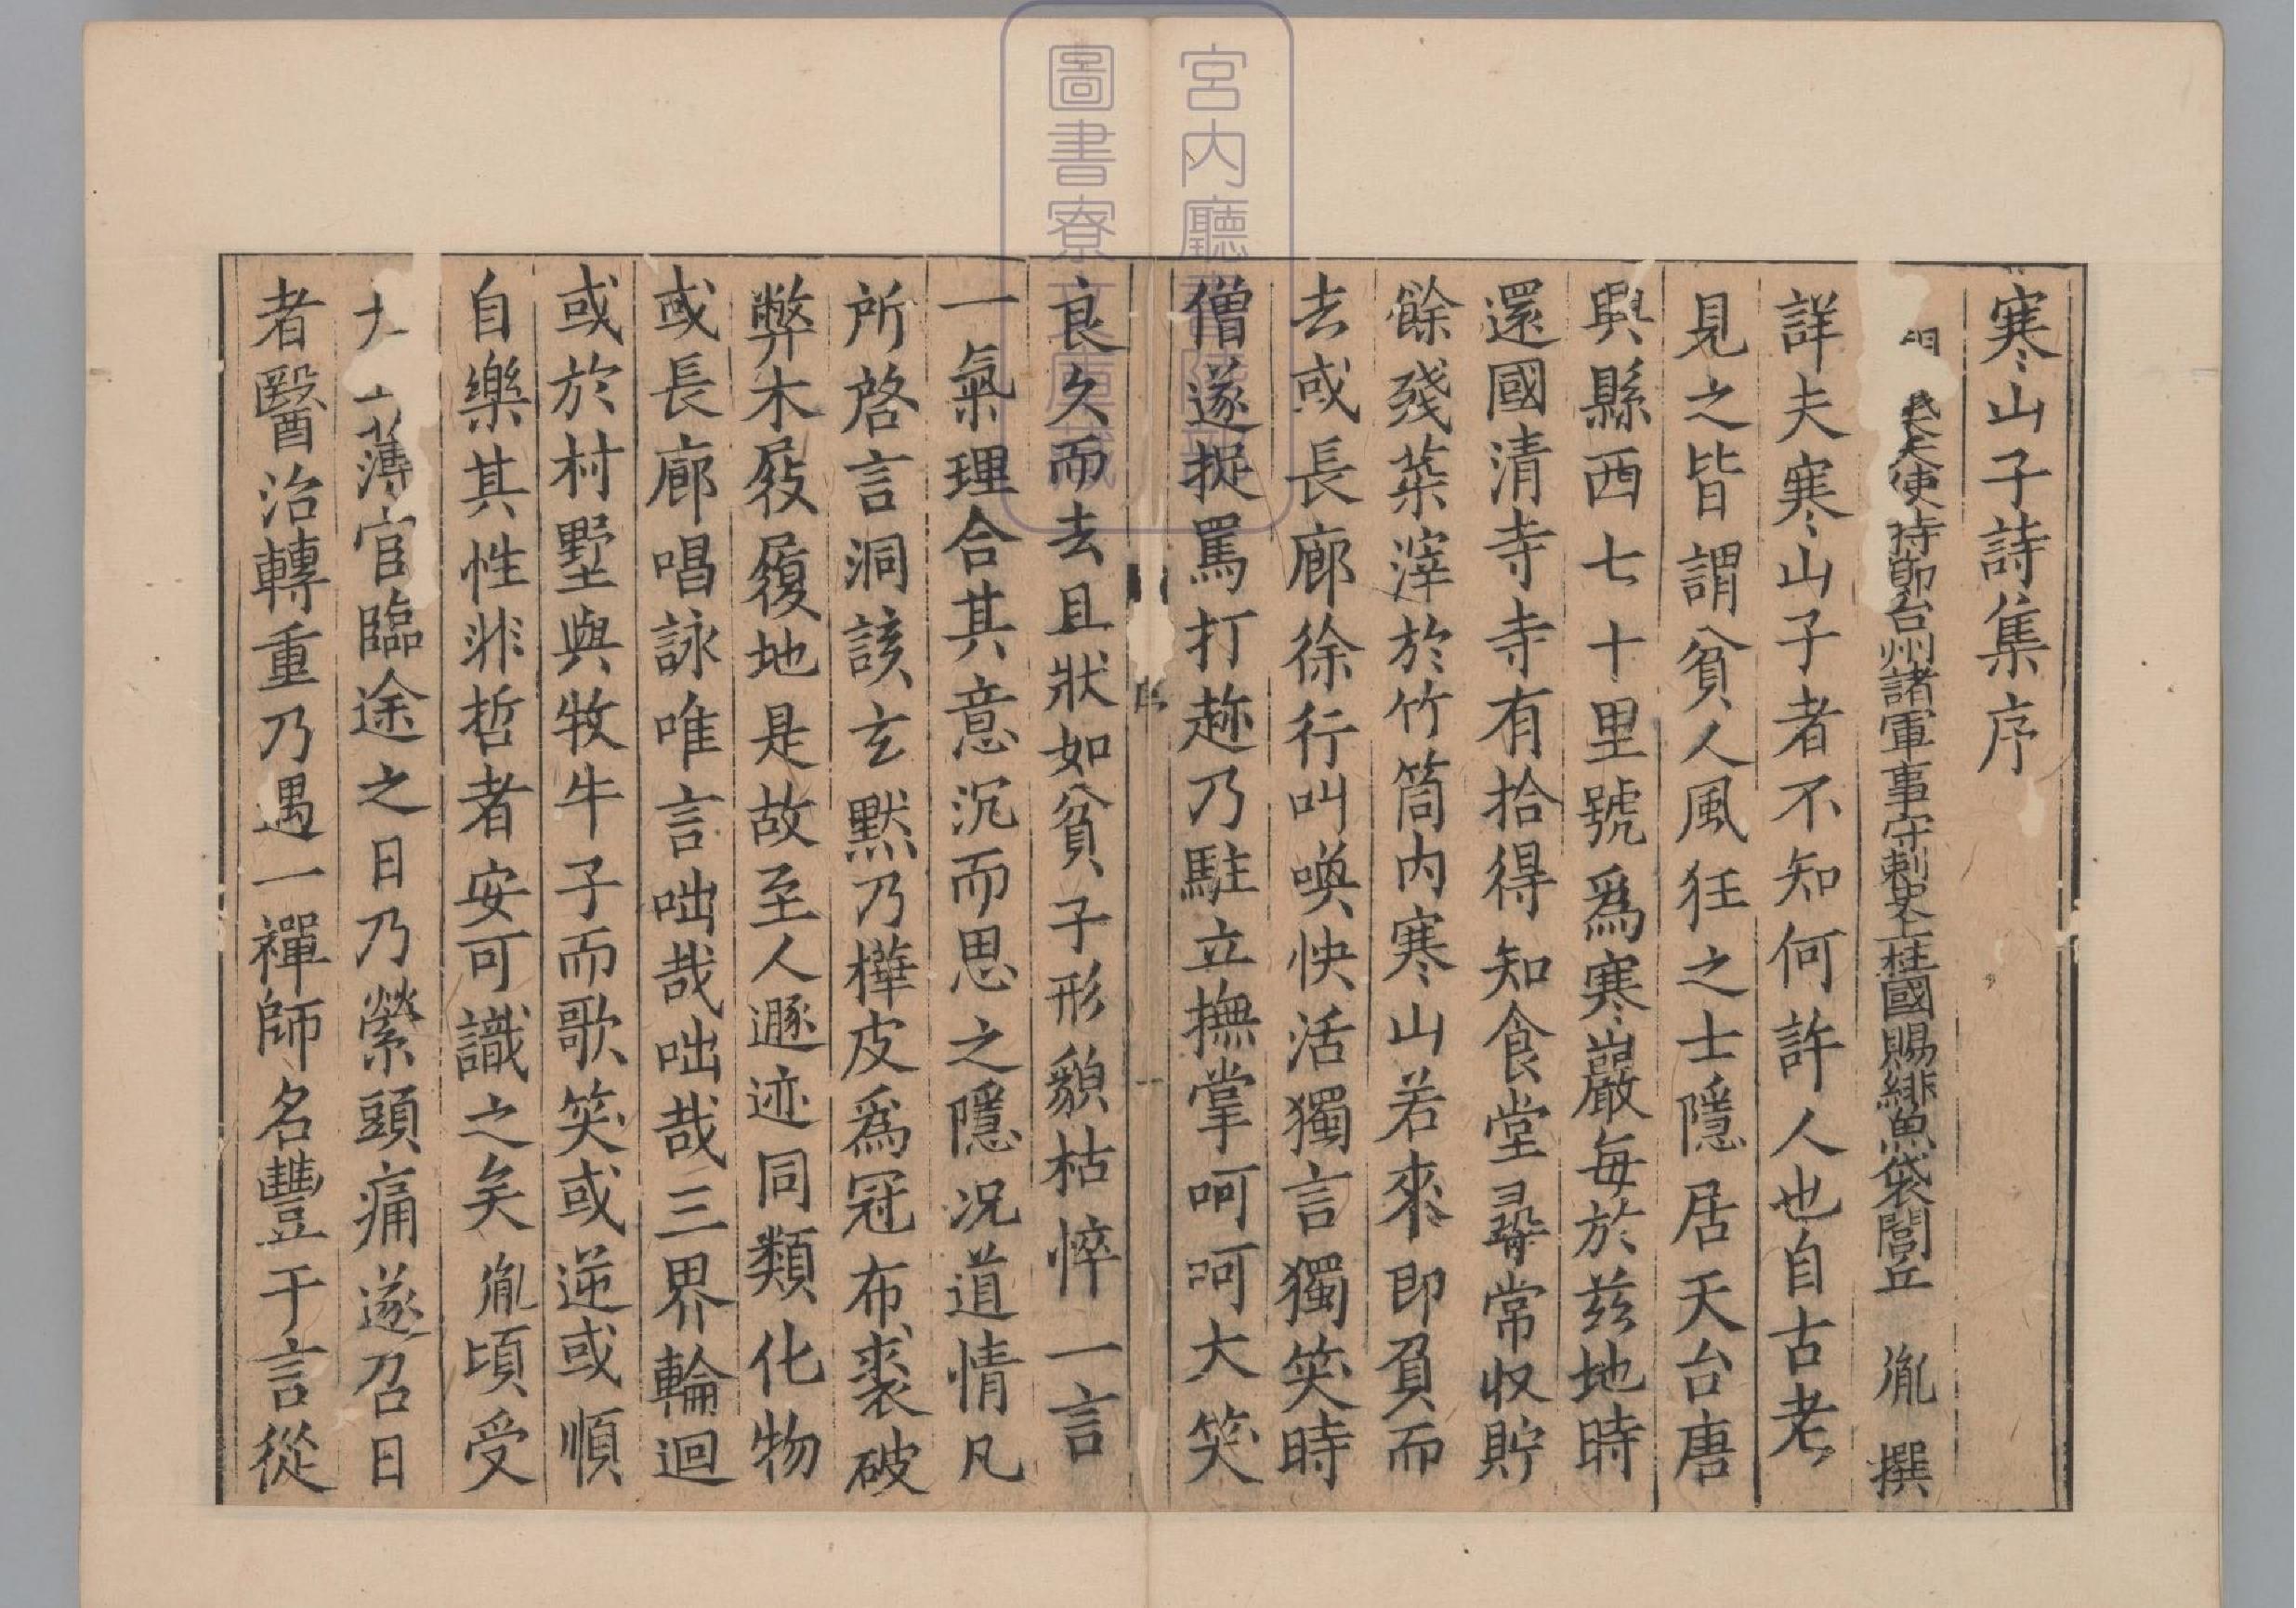 寒山子詩集序
大夫使持節台州諸軍事守刺史上柱國賜緋魚袋閭丘胤撰
詳夫寒山子者不知何許人也自古老
見之皆謂貧人風狂之士隱居天台唐
興縣西七十里號爲寒巖每於茲地時
還國清寺寺有拾得知食堂尋常収貯
餘殘菜滓於竹筒内寒山若來即負而
去或長廊徐行叫喚快活獨言獨笑時
僧遂捉罵打趂乃駐立撫掌呵呵大笑
良久而去且狀如貧子形貌枯悴一言
一氣理合其意沉而思之隱况道情凡
所啓言洞該玄默乃樺皮爲冠布裘破
弊木屐履地是故至人遯迹同類化物
或長廊唱詠唯言咄哉咄哉三界輪迴
或於村墅與牧牛子而歌笑或逆或順
自樂其性非哲者安可識之矣胤頃受
薄官臨途之日乃縈頭痛遂召日
者醫治轉重乃遇一禪師名豐干言從
宮内廳
圖書寮文庫藏